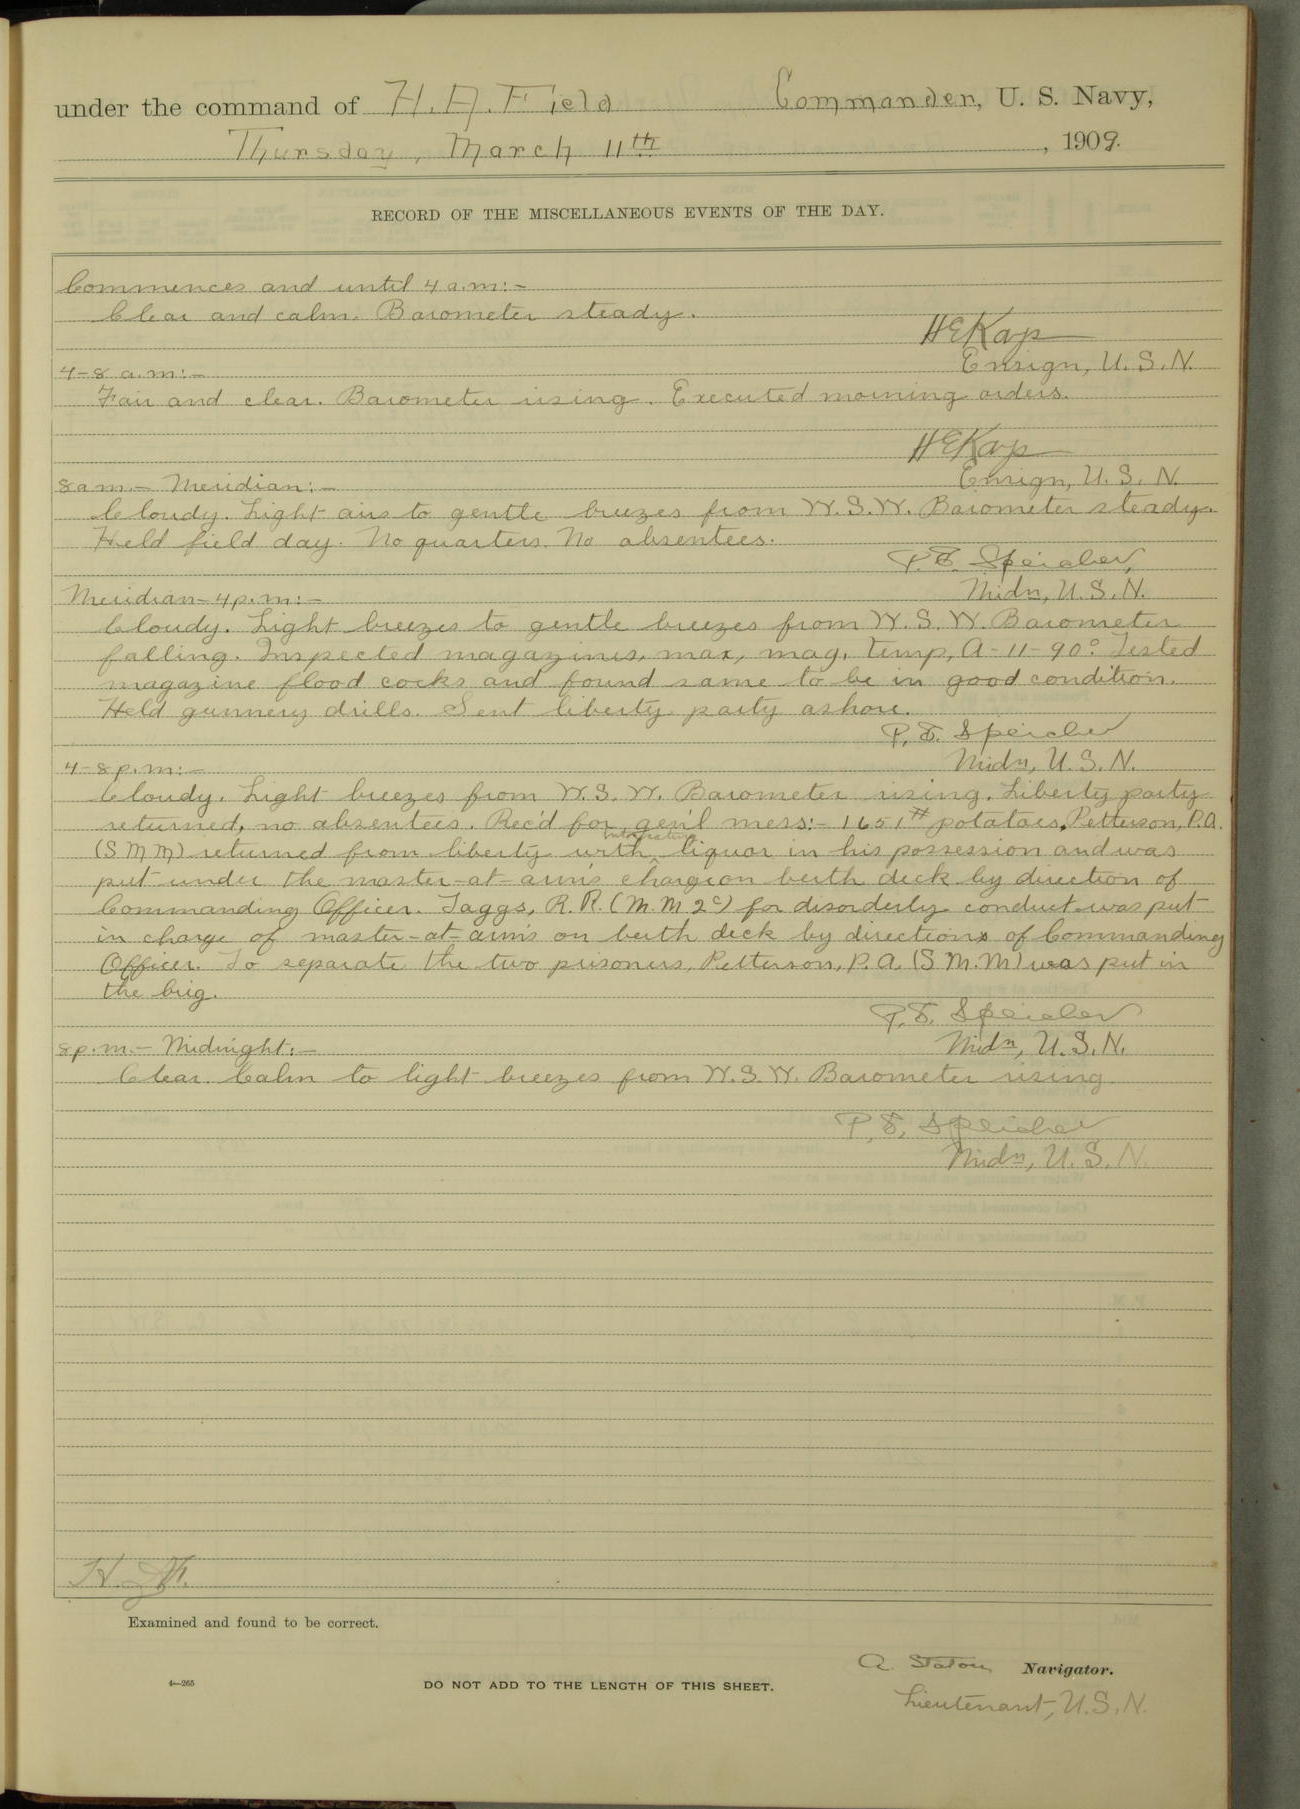 under the command of H. A. Field Commander, U. S. Navy,
Thursday, March 11th, 1909.
RECORD OF THE MISCELLANEOUS EVENTS OF THE DAY.
Commences and until 4 a.m:-
Clear and calm. Barometer steady.
HEKays
Ensign, U.S.N.
4-8 a.m:-
Fair and clear. Barometer rising. Executed morning orders.
HEKays
Ensign, U.S.N.
8 am.- Meridian:-
Cloudy. Light airs to gentle breezes from W.S.W. Barometer steady.
Held field day. No quarters. No absentees.
P.E. Speicher,
Midn, U.S.N.
Meridian-4p.m:-
Cloudy. Light breezes to gentle breezes from W.S.W. Barometer
falling. Inspected magazines, max, mag. temp, A-11-90°. Tested
magazine flood cocks and found same to be in good condition.
Held gunnery drills. Sent liberty party ashore.
P.E. Speicher
Midn, U.S.N.
4-8p.m:-
Cloudy. Light breezes from W.S.W. Barometer rising. Liberty party
returned, no absentees. Rec'd for gen'l mess:- 1651# potatoes. Petterson, P.A.
(S M M) returned from liberty with liquor in his possession and was
put under the master-at-arm's charge on berth deck by direction of
Commanding Officer. Taggs, R.R. (M.M.2c) for disorderly conduct was put
in charge of master-at-arms on berth deck by direction of Commanding
Officer. To separate the two prisoners, Petterson, P.A. (S M.M) was put in
the brig.
P.E. Speicher
Midn, U.S.N.
8p.m.- Midnight:-
Clear. Calm to light breezes from W.S.W. Barometer rising
P.E. Speicher
Midn, U.S.N.
Examined and found to be correct.
A. Staton Navigator.
4-265
DO NOT ADD TO THE LENGTH OF THIS SHEET.
Lieutenant, U.S.N.